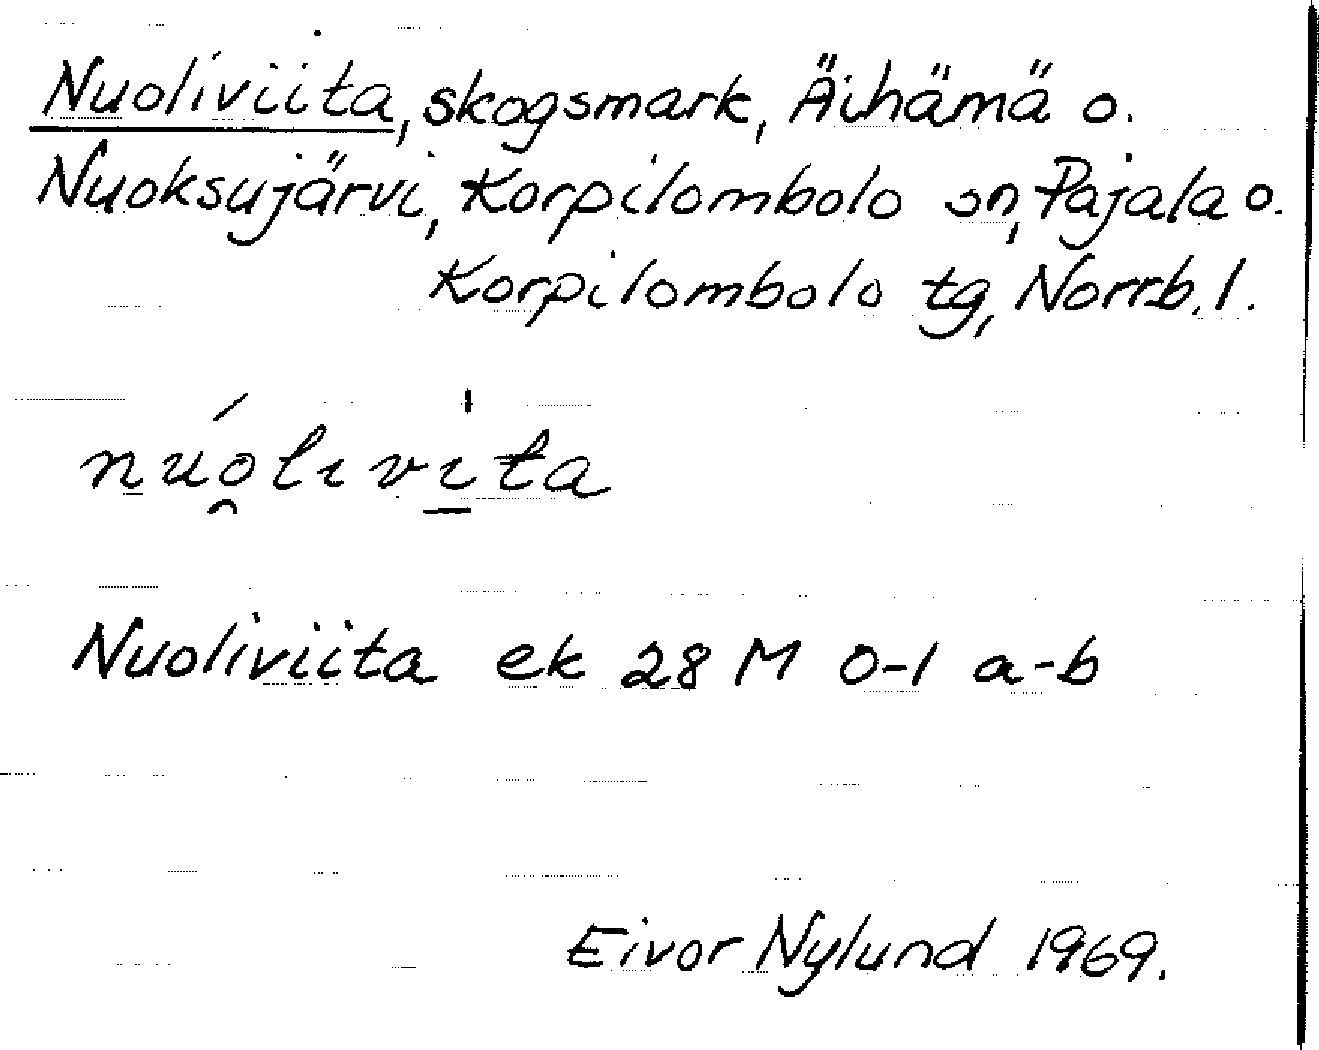 Nuoliviita, skogsmark, Äihämä o.
Nuoksujärvi, Korpilombolo sn, Pajala o.
Korpilombolo tg, Norrb. l.
núo̯lɩvɩ̱̍ta
Nuoliviita ek 28 M 0-1 a-b
Eivor Nylund 1969.